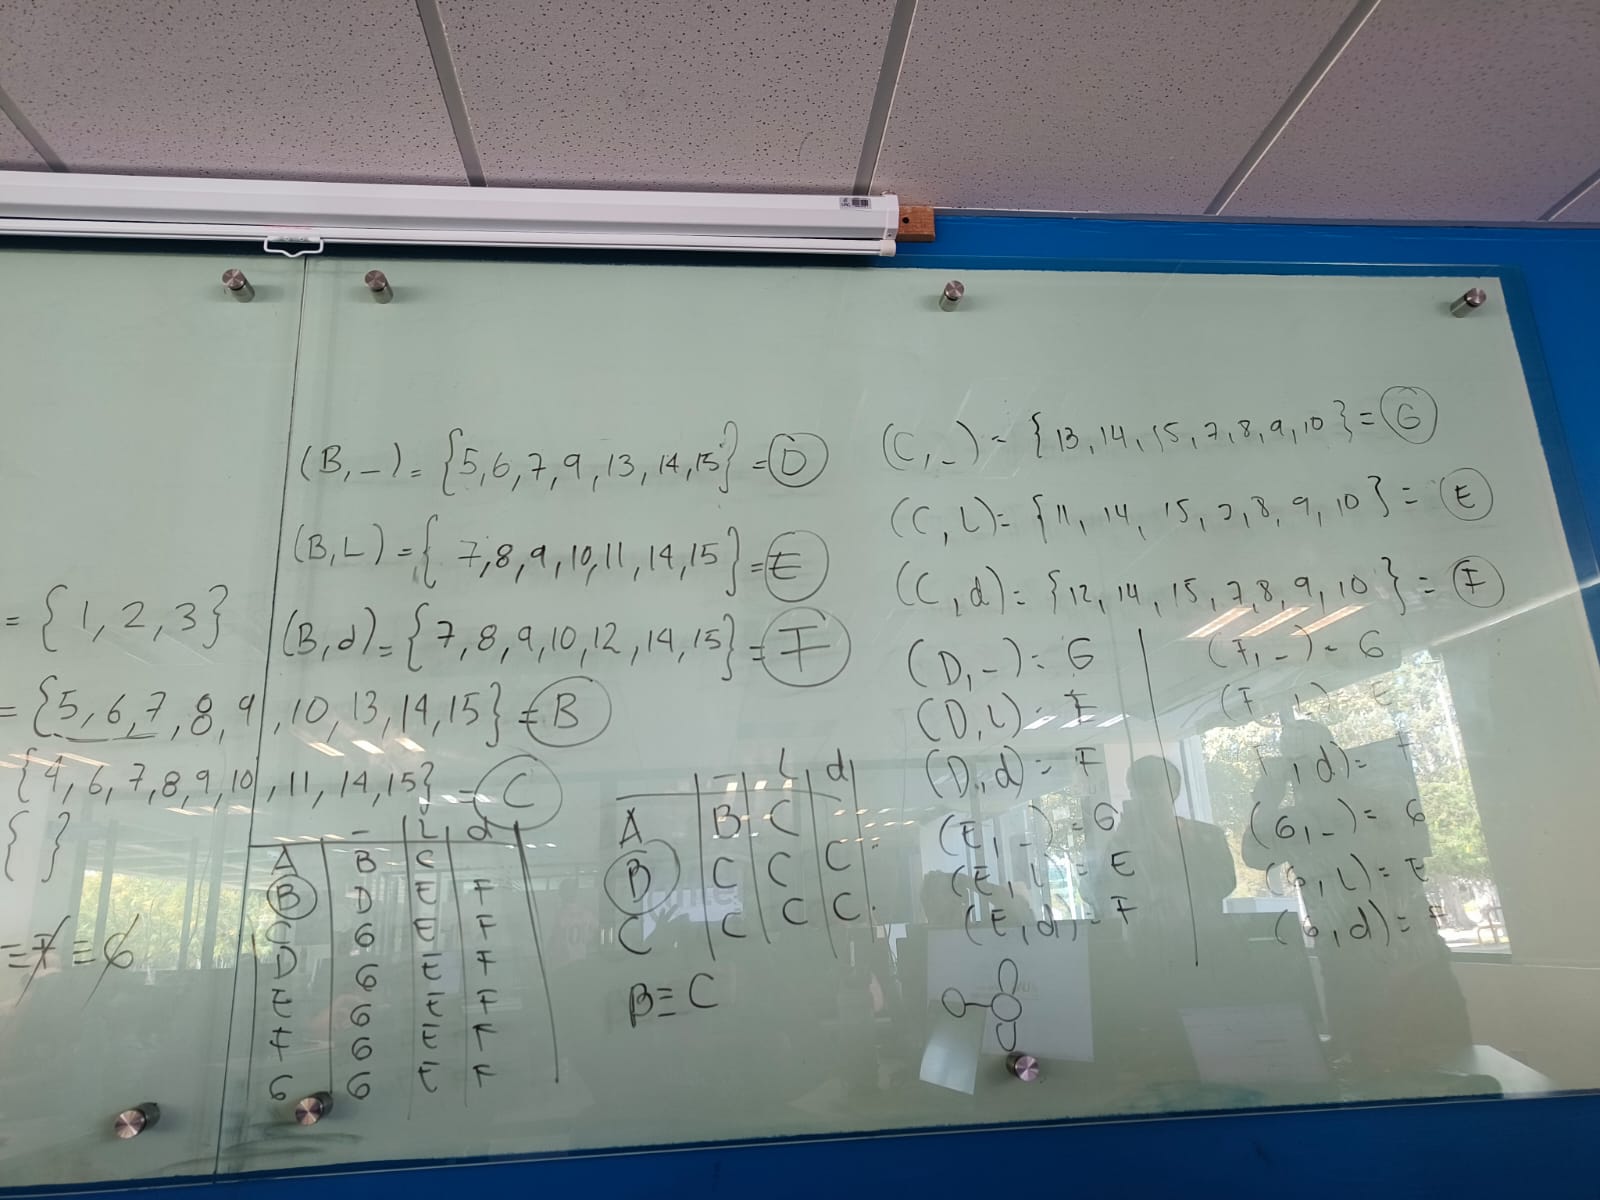 = {1, 2, 3}
= {5, 6, 7, 8, 9, 10, 13, 14, 15} = B
{4, 6, 7, 8, 9, 10, 11, 14, 15} = C
{ }
= 7 = 6
(B, _) = {5, 6, 7, 9, 13, 14, 15} = D
(B, L) = {7, 8, 9, 10, 11, 14, 15} = E
(B, d) = {7, 8, 9, 10, 12, 14, 15} = F
_ L d
A B C
B D E F
C G E F
D G E F
E G E F
F G E F
G G E F
_ L d
A B C
B C C C
C C C C
B ≡ C
(C, _) = {13, 14, 15, 7, 8, 9, 10} = G
(C, L) = {11, 14, 15, 7, 8, 9, 10} = E
(C, d) = {12, 14, 15, 7, 8, 9, 10} = F
(D, _) = G
(D, L) = E
(D, d) = F
(E, _) = G
(E, L) = E
(E, d) = F
(F, _) = G
(F, L) = E
, d) =
(G, _) = G
(G, L) = E
(G, d) = F